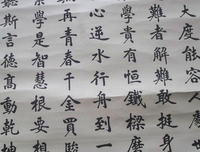 大度能容
難者解難敢挺身
學貴有恒鐵樑磨
心逆水行舟到一
再青春千金買駿
學是智慧根要想
斯言德高動乾坤